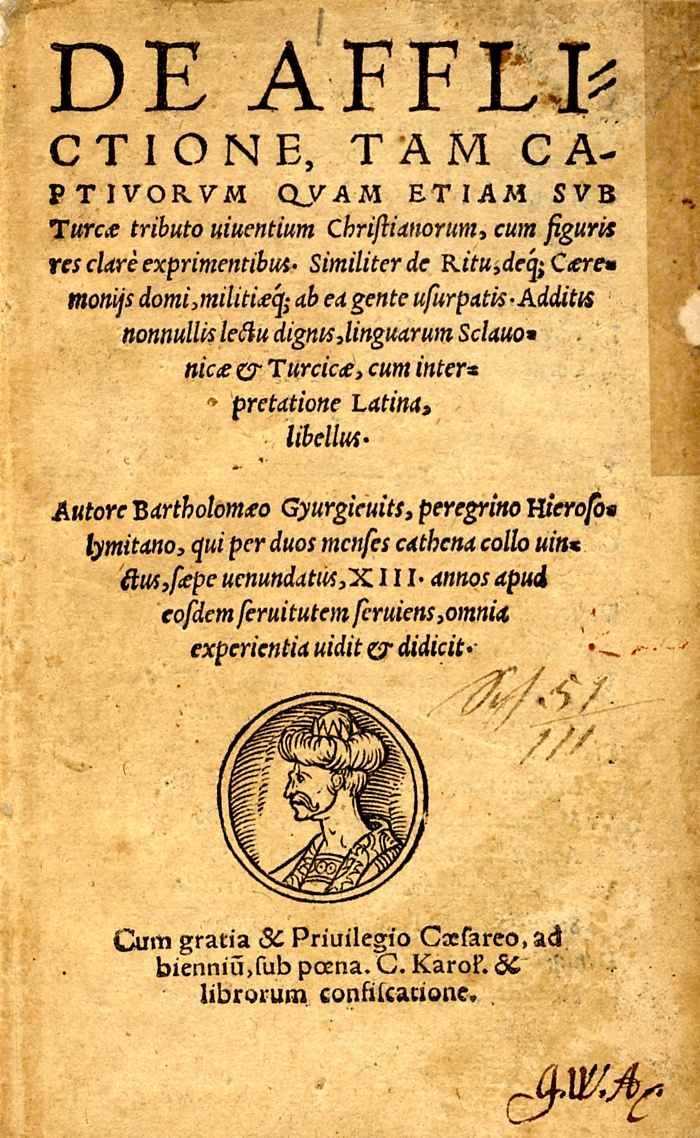 DE AFFLI⸗
CTIONE, TAM CA-
PTIVORVM QVAM ETIAM SVB
Turcæ tributo uiuentium Chriſtianorum, cum figuris
res clarè exprimentibus. Similiter de Ritu, deq́; Cære⸗
monijs domi, militiæq́; ab ea gente uſurpatis. Additis
nonnullis lectu dignis, linguarum Sclauo⸗
nicæ & Turcicæ, cum inter⸗
pretatione Latina,
libellus.
Autore Bartholomæo Gyurgieuits, peregrino Hieroſo⸗
lymitano, qui per duos menſes cathena collo uin⸗
ctus, ſæpe uenundatus, XIII. annos apud
eoſdem ſeruitutem ſeruiens, omnia
experientia uidit & didicit.
51
III
Cum gratia & Priuilegio Cæſareo, ad
bienniū, ſub pœna. C. Karoł. &
librorum confiſcatione.
G.W.A.